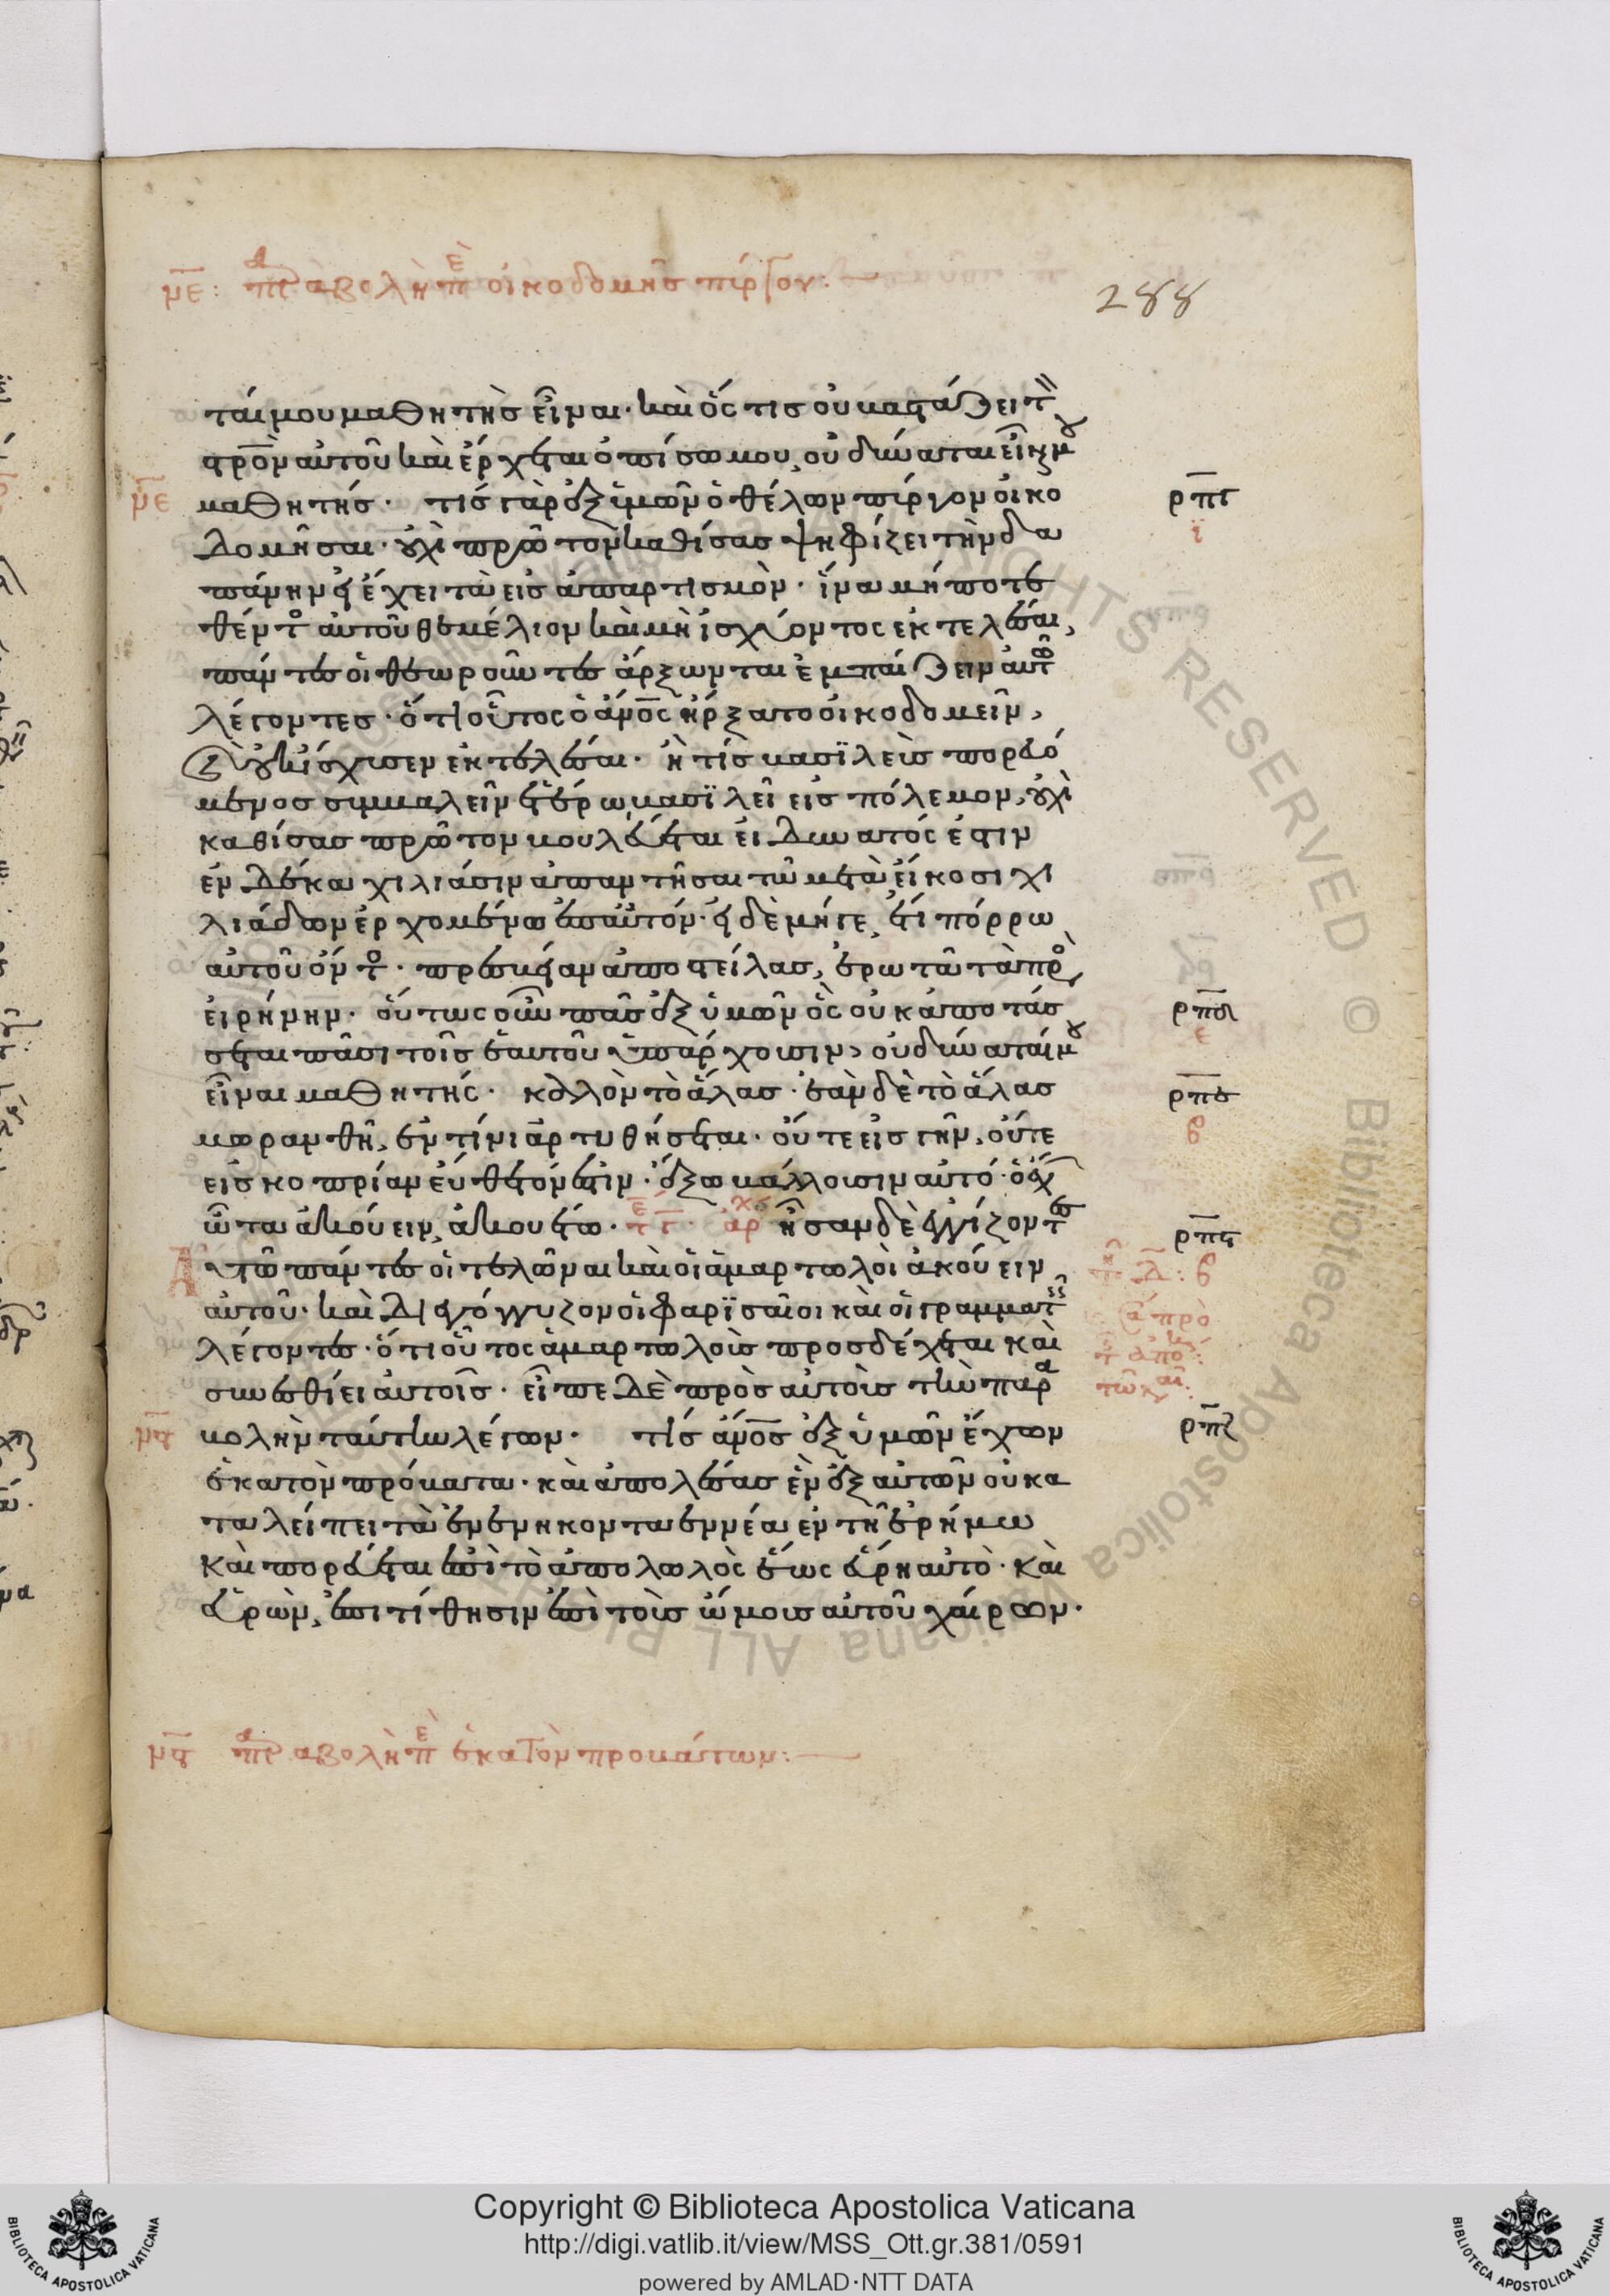 με: παραβολὴ περὶ οἰκοδομῆς πύργου:
288
ταί μου μαθητὴς εἶναι· καὶ ὅς τις οὐ βαστάζει τὸν
σταυρὸν αὐτοῦ καὶ ἔρχεται ὀπίσω μου, οὐ δύναται εἶναί μου
με μαθητής· τίς γὰρ ἐξ ὑμῶν ὁ θέλων πύργον οἰκο ρπγ
δομῆσαι· οὐχὶ πρῶτον καθίσας ψηφίζει τὴν δα ι
πάνην εἰ ἔχει τὰ εἰς ἀπαρτισμὸν· ἵνα μή ποτε
θέντος αὐτοῦ θεμέλιον καὶ μὴ ἰσχύοντος ἐκτελέσαι,
πάντες οἱ θεωροῦντες ἄρξωνται ἐμπαίζειν αὐτῶ
λέγοντες· ὅτι οὗτος ὁ ἄνος ἤρξατο οἰκοδομεῖν,
καὶ οὐκ ἴσχυσεν ἐκτελέσαι· ἢ τίς βασϊλεὺς πορευό
μενος συμβαλεῖν ἑτέρω βασϊλεῖ εἰς πόλεμον, οὐχὶ
καθίσας πρῶτον βουλεύεται εἰ δυνατός ἐστιν
ἐν δέκα χιλιάσιν ἀπαντῆσαι τῶ μετὰ εἴκοσι χι
λιάδων ἐρχομένω ἐπ αὐτόν· εἰ δὲ μήγε, ἔτι πόρρω
αὐτοῦ ὄντος· πρεσβείαν ἀποστείλας, ἐρωτᾶ τὰ πρὸς
εἰρήνην· οὕτως οὖν πᾶς ἐξ ὑμῶν ὃς οὐκ ἀποτάσ ρπδ
σεται πᾶσι τοῖς ἑαυτοῦ ὑπάρχουσιν, οὐ δύναταί μου ε
εἶναι μαθητής· καλὸν τὸ ἅλας· ἐὰν δὲ τὸ ἅλας ρπε
μωρανθῆ, ἐν τίνι ἀρτυθήσεται· οὔτε εἰς γῆν, οὔτε β
εἰς κοπρίαν εὔθετόν ἐστιν· ἔξω βάλλουσιν αὐτό· ὁ ἔχων
ὦτα ἀκούειν, ἀκουέτω· ἦσαν δὲ ἐγγίζοντες ρπς
αὐτῶ πάντες οἱ τελῶναι καὶ οἱ ἁμαρτωλοὶ ἀκούειν β
αὐτοῦ· καὶ διεγόγγυζον οἱ φαρϊσαῖοι καὶ οἱ γραμματεῖς
λέγοντες· ὅτι οὗτος ἁμαρτωλοὺς προσδέχεται καὶ
συνεσθίει αὐτοῖς· εἶπε δὲ πρὸς αὐτοὺς τὴν παρα
μς βολὴν ταύτην λέγων· τίς ἄνος ἐξ ὑμῶν ἔχων ρπζ
ἑκατὸν πρόβατα· καὶ ἀπολέσας ἓν ἐξ αὐτῶν οὐ κα
ταλείπει τὰ ἐνενηκονταεννέα ἐν τῆ ἐρήμω
καὶ πορεύεται ἐπὶ τὸ ἀπολωλὸς ἕως εὕρη αὐτὸ· καὶ
εὑρὼν, ἐπιτίθησιν ἐπὶ τοὺς ὤμους αὐτοῦ χαίρων·
μς παραβολὴ περὶ ἑκατὸν προβάτων:
Copyright © Biblioteca Apostolica Vaticana
http://digi.vatlib.it/view/MSS_Ott.gr.381/0591
powered by AMLAD·NTT DATA